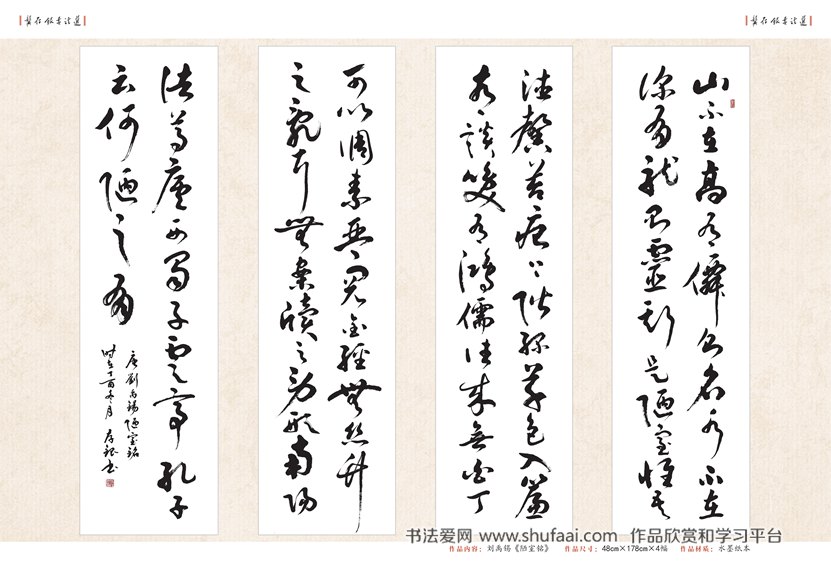 存银书法选
存银书法选
山不在高有僊则名水不在
深有龍则靈斯是陋室惟吾
德馨苔痕上階綠草色入簾
青談笑有鴻儒往来無白丁
可以調素琴閲金經無丝竹
之亂耳無案牘之劳形南陽
诸葛廬西蜀子雲亭孔子
云何陋之有
唐劉禹錫陋室銘
时在丁酉冬月 存银书
书法爱网 www.shufaai.com 作品欣赏和学习平台
作品内容：刘禹锡《陋室铭》 作品尺寸：48cm×178cm×4幅 作品材质：水墨纸本